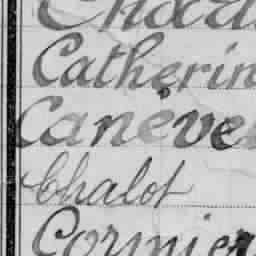 Catherin
Canève
Chalot
Cormier